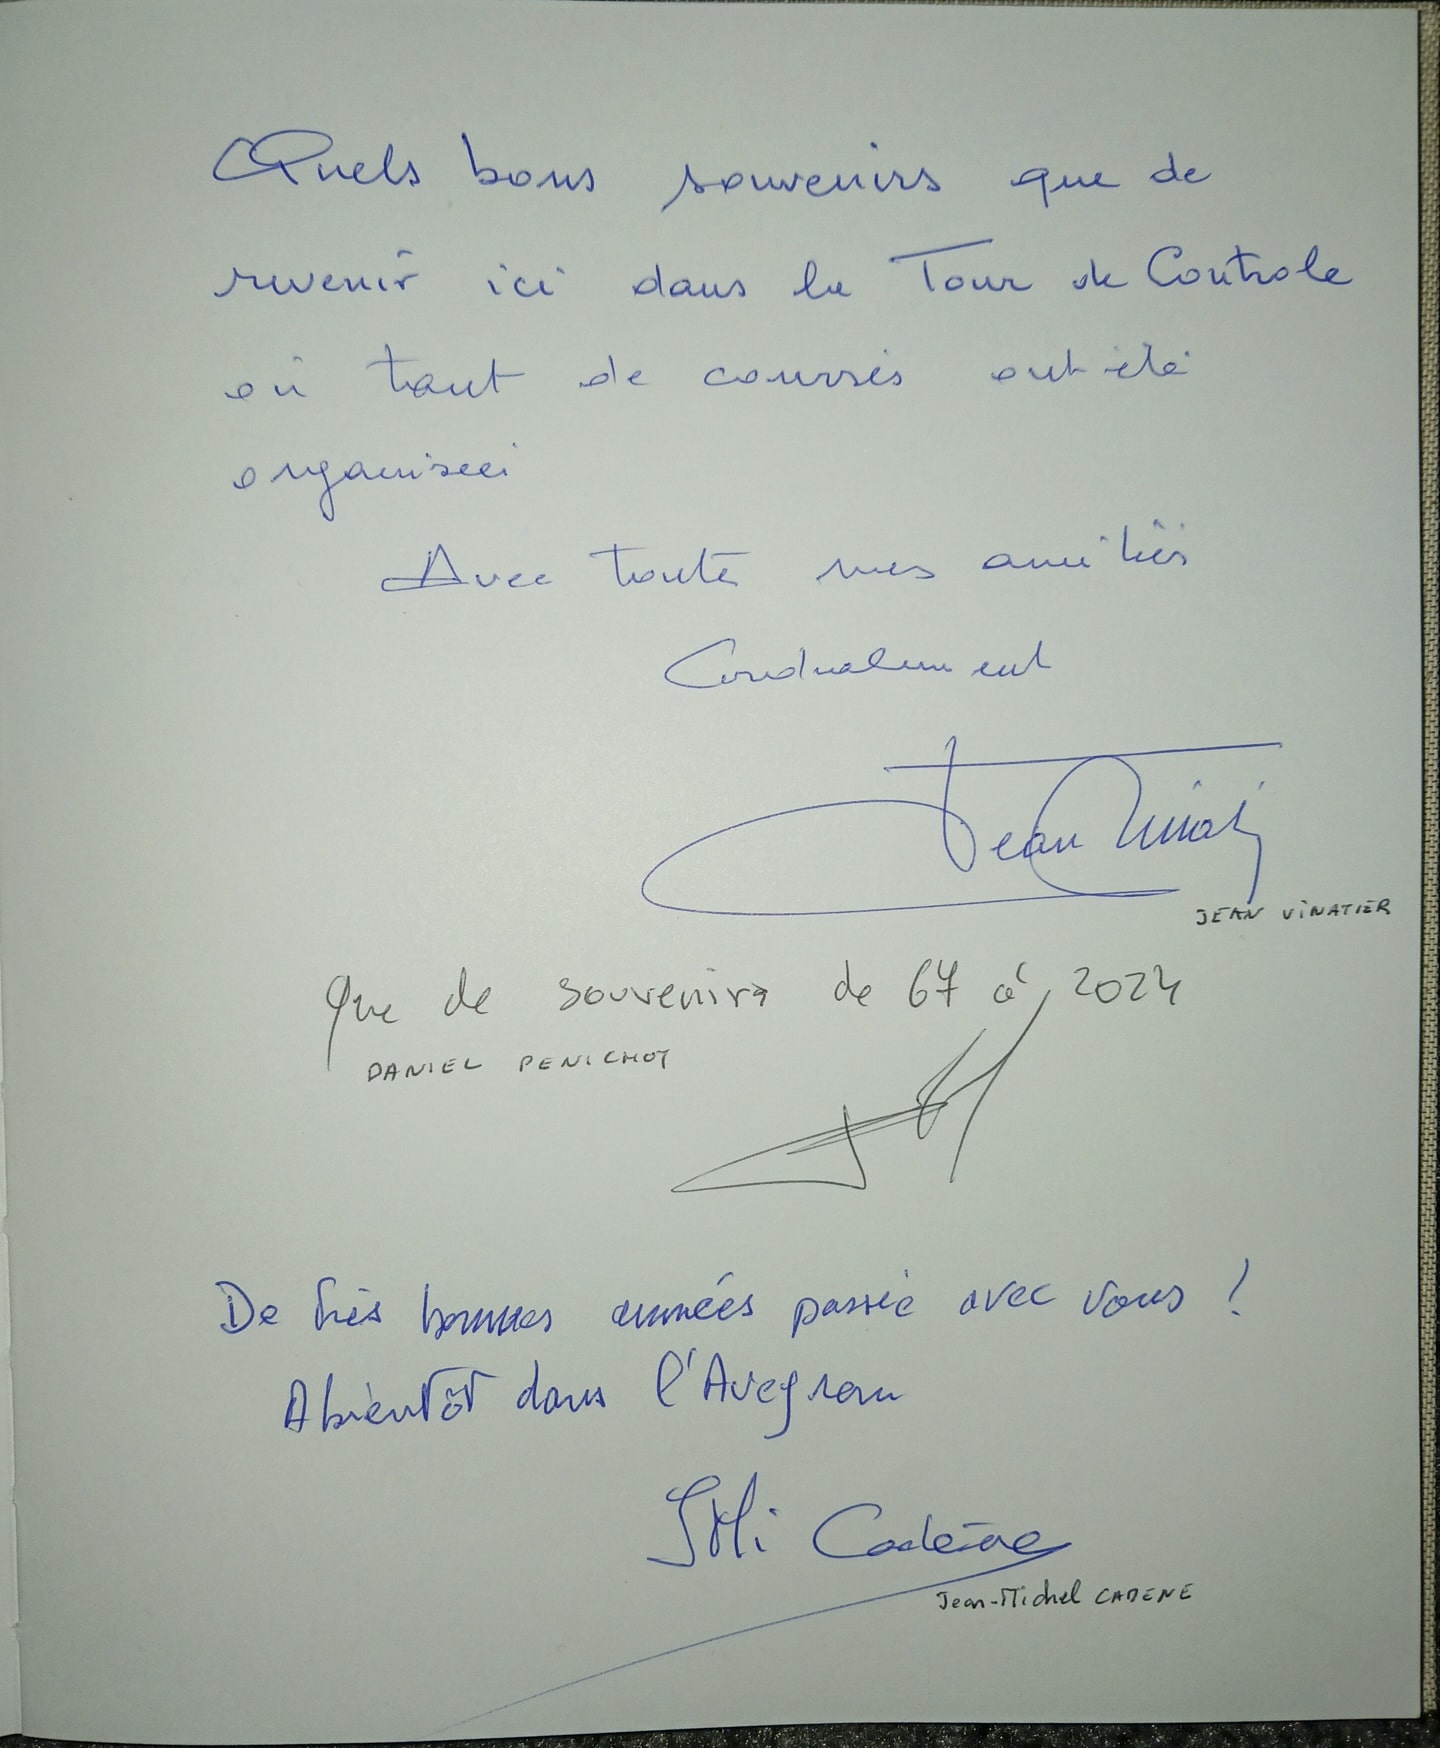 Quels bons souvenirs que de
revenir ici dans la Tour de Controle
où tant de courses ont été
organisées
Avec toute mes amitiés
Cordialement
Jean Vinatier
JEAN VINATIER
Que de souvenirs de 67 à 2024
DANIEL PENICHOT
De très bonnes années passée avec vous !
Abientôt dans l'Aveyron
JMi Cadène
Jean-Michel CADENE